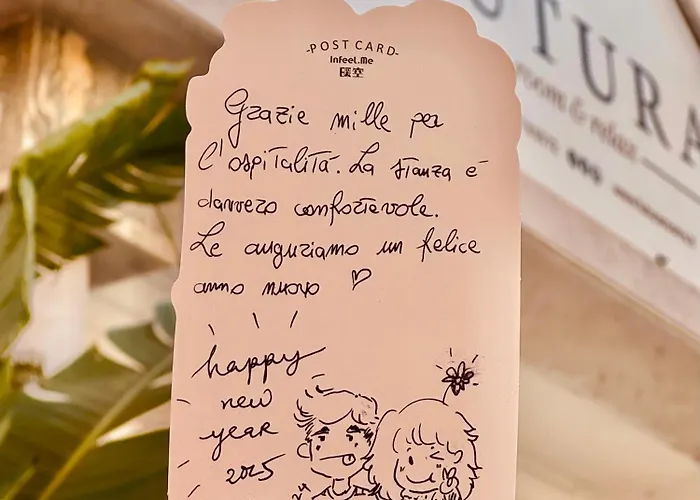 -POST CARD-
InFeel.Me
Grazie mille per
l'ospitalità. La stanza è
davvero confortevole.
Le auguriamo un felice
anno nuovo ♡
happy
new
year
2025
TURA
room & relax